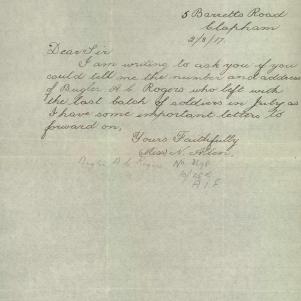 5 Barretts Road
Clapham
2/8/17.
Dear Sir
I am writing to ask you if you
could tell me the number and address
of Bugler A L Rogers who left with
the last batch of soldiers in July as
I have some important letters to
forward on,
Yours Faithfully
Miss N.
Bugler A L Rogers No
A I F